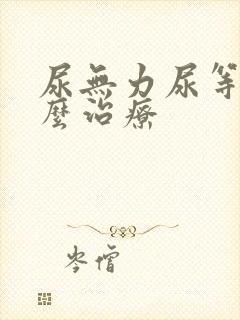 尿無力尿等
麼治療
岑僧